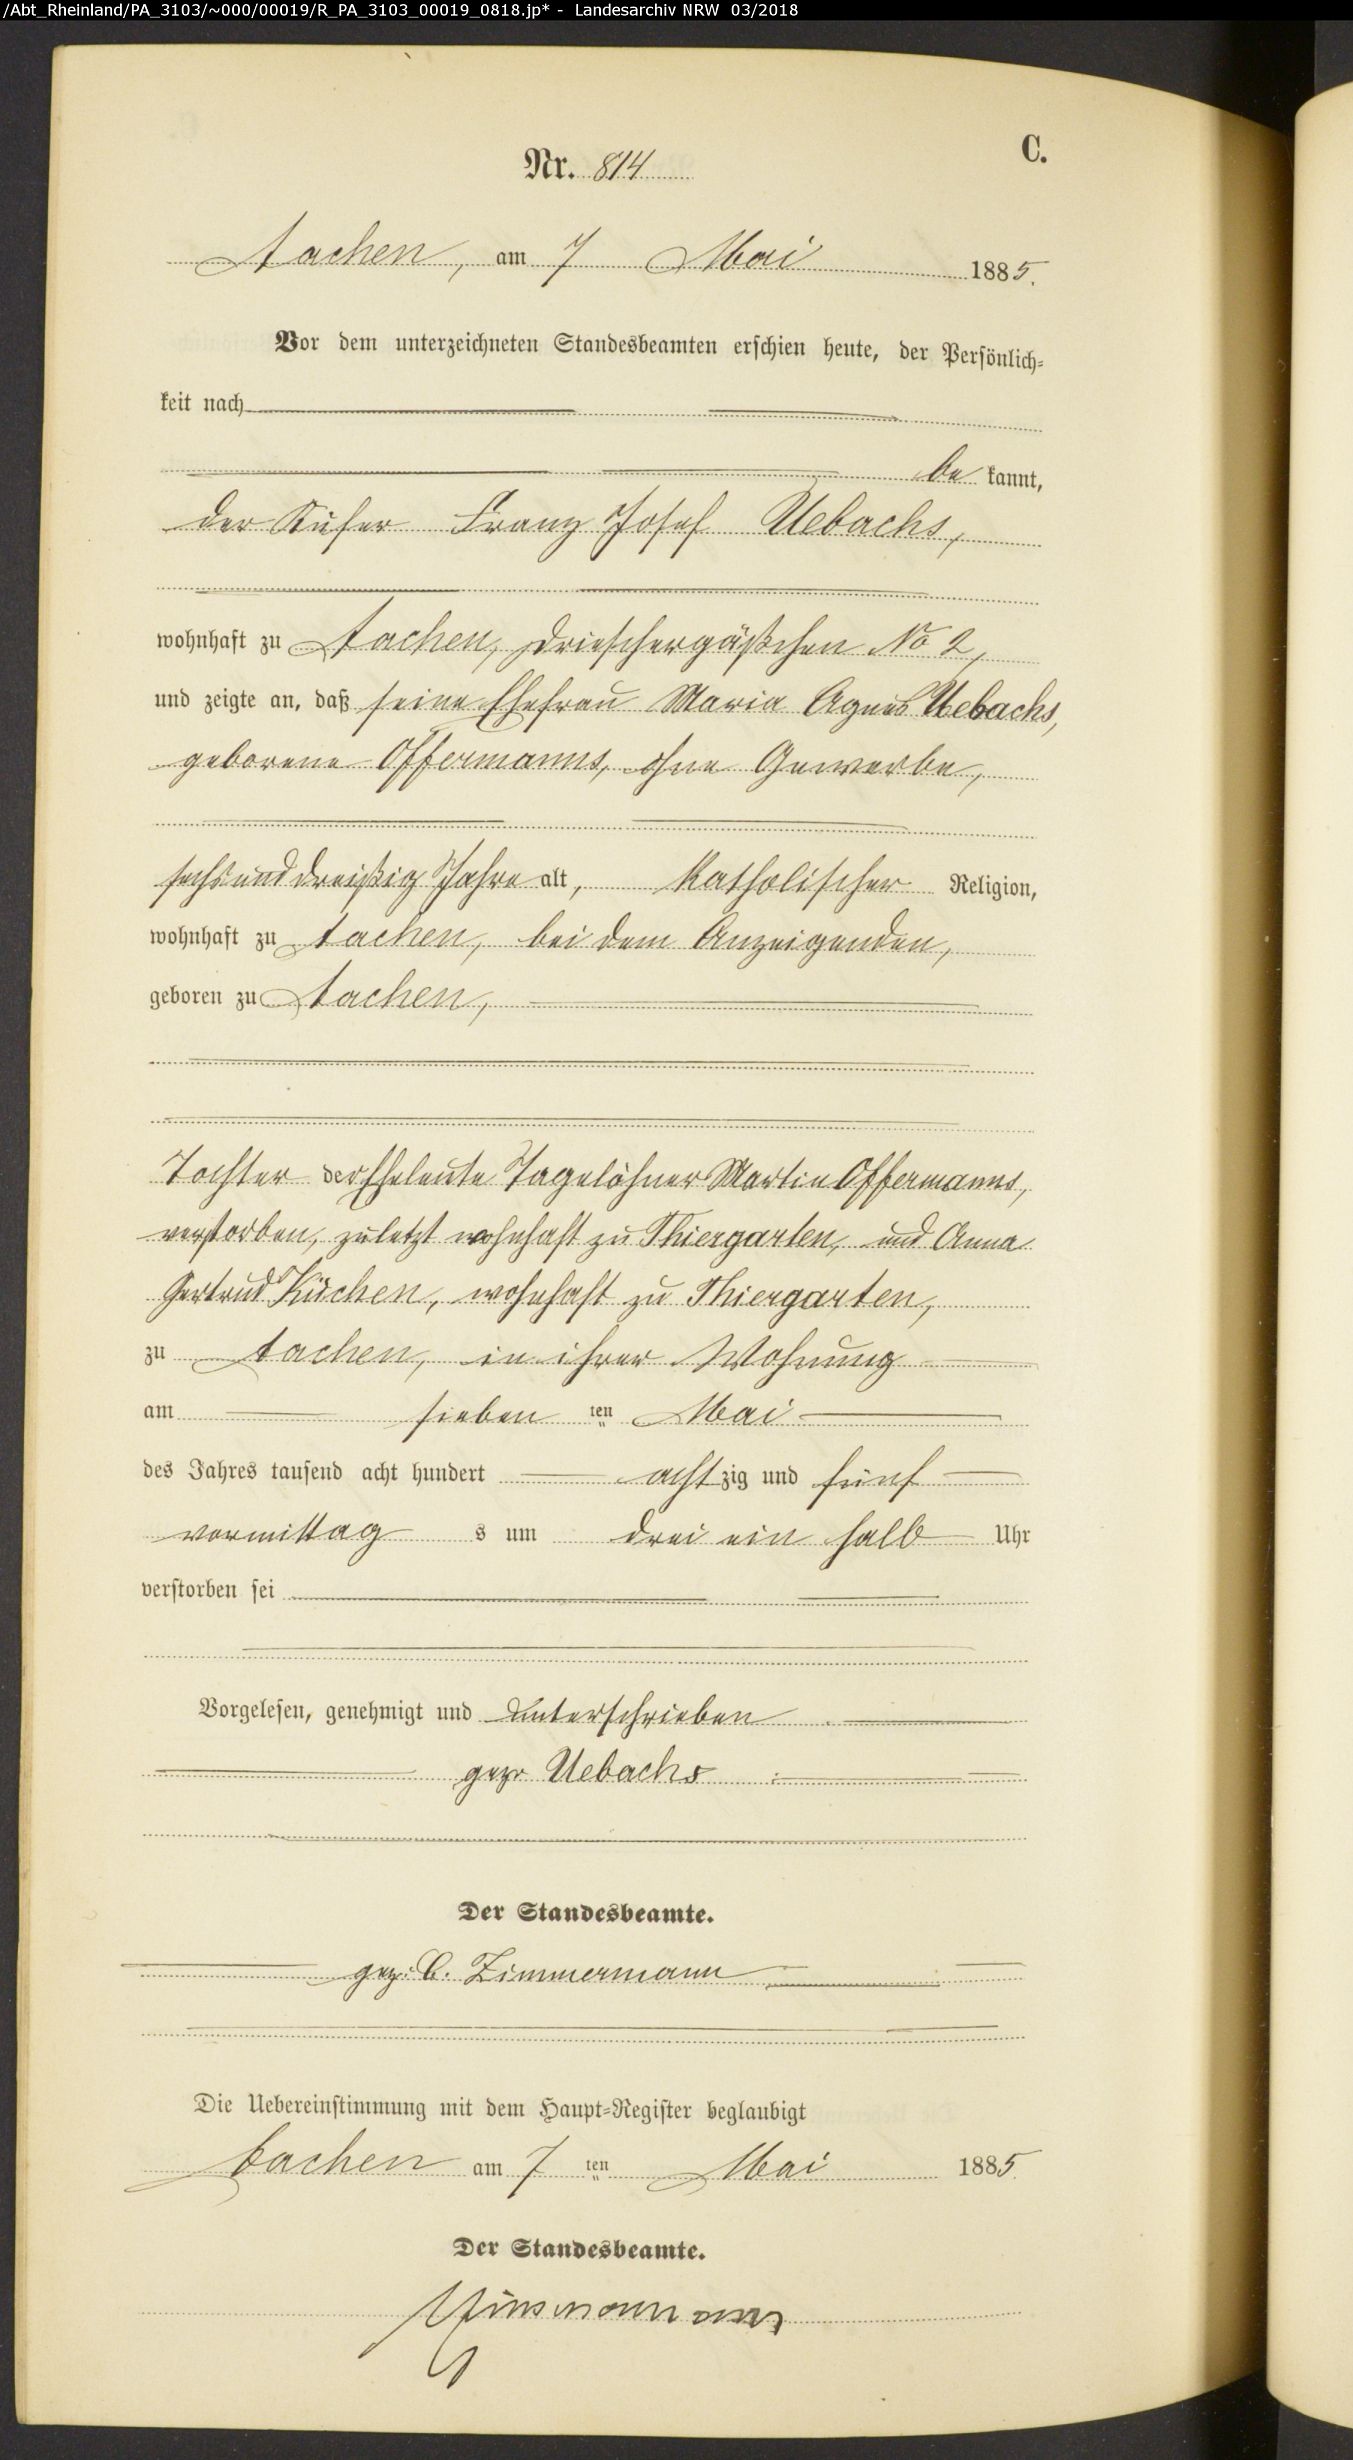 /Abt_Rheinland/PA_3103/~000/00019/R_PA_3103_00019_0818.jp* - Landesarchiv NRW 03/2018
C.
Nr. 814
Aachen, am 7 Mai 1885.
Vor dem unterzeichneten Standesbeamten erschien heute, der Persönlich-
keit nach
be kannt,
der Küfer Franz Josef Uebachs,
wohnhaft zu Aachen, Drieschergäßchen No 2,
und zeigte an, daß seine Ehefrau Maria Agnes Uebachs,
geborene Offermanns, ohne Gewerbe,
sechsunddreißig Jahre alt, Katholischer Religion,
wohnhaft zu Aachen, bei dem Anzeigenden,
geboren zu Aachen,
Tochter der Eheleute Tagelöhner Martin Offermanns,
verstorben, zuletzt wohnhaft zu Thiergarten, und Anna
Gertrud Küchen, wohnhaft zu Thiergarten,
zu Aachen, in ihrer Wohnung
am sieben ten Mai
des Jahres tausend acht hundert achtzig und fünf
vormittag s um drei ein halb Uhr
verstorben sei
Vorgelesen, genehmigt und unterschrieben
gez. Uebachs
Der Standesbeamte.
gez. C. Zimmermann
Die Uebereinstimmung mit dem Haupt-Register beglaubigt
Aachen am 7 ten Mai 1885
Der Standesbeamte.